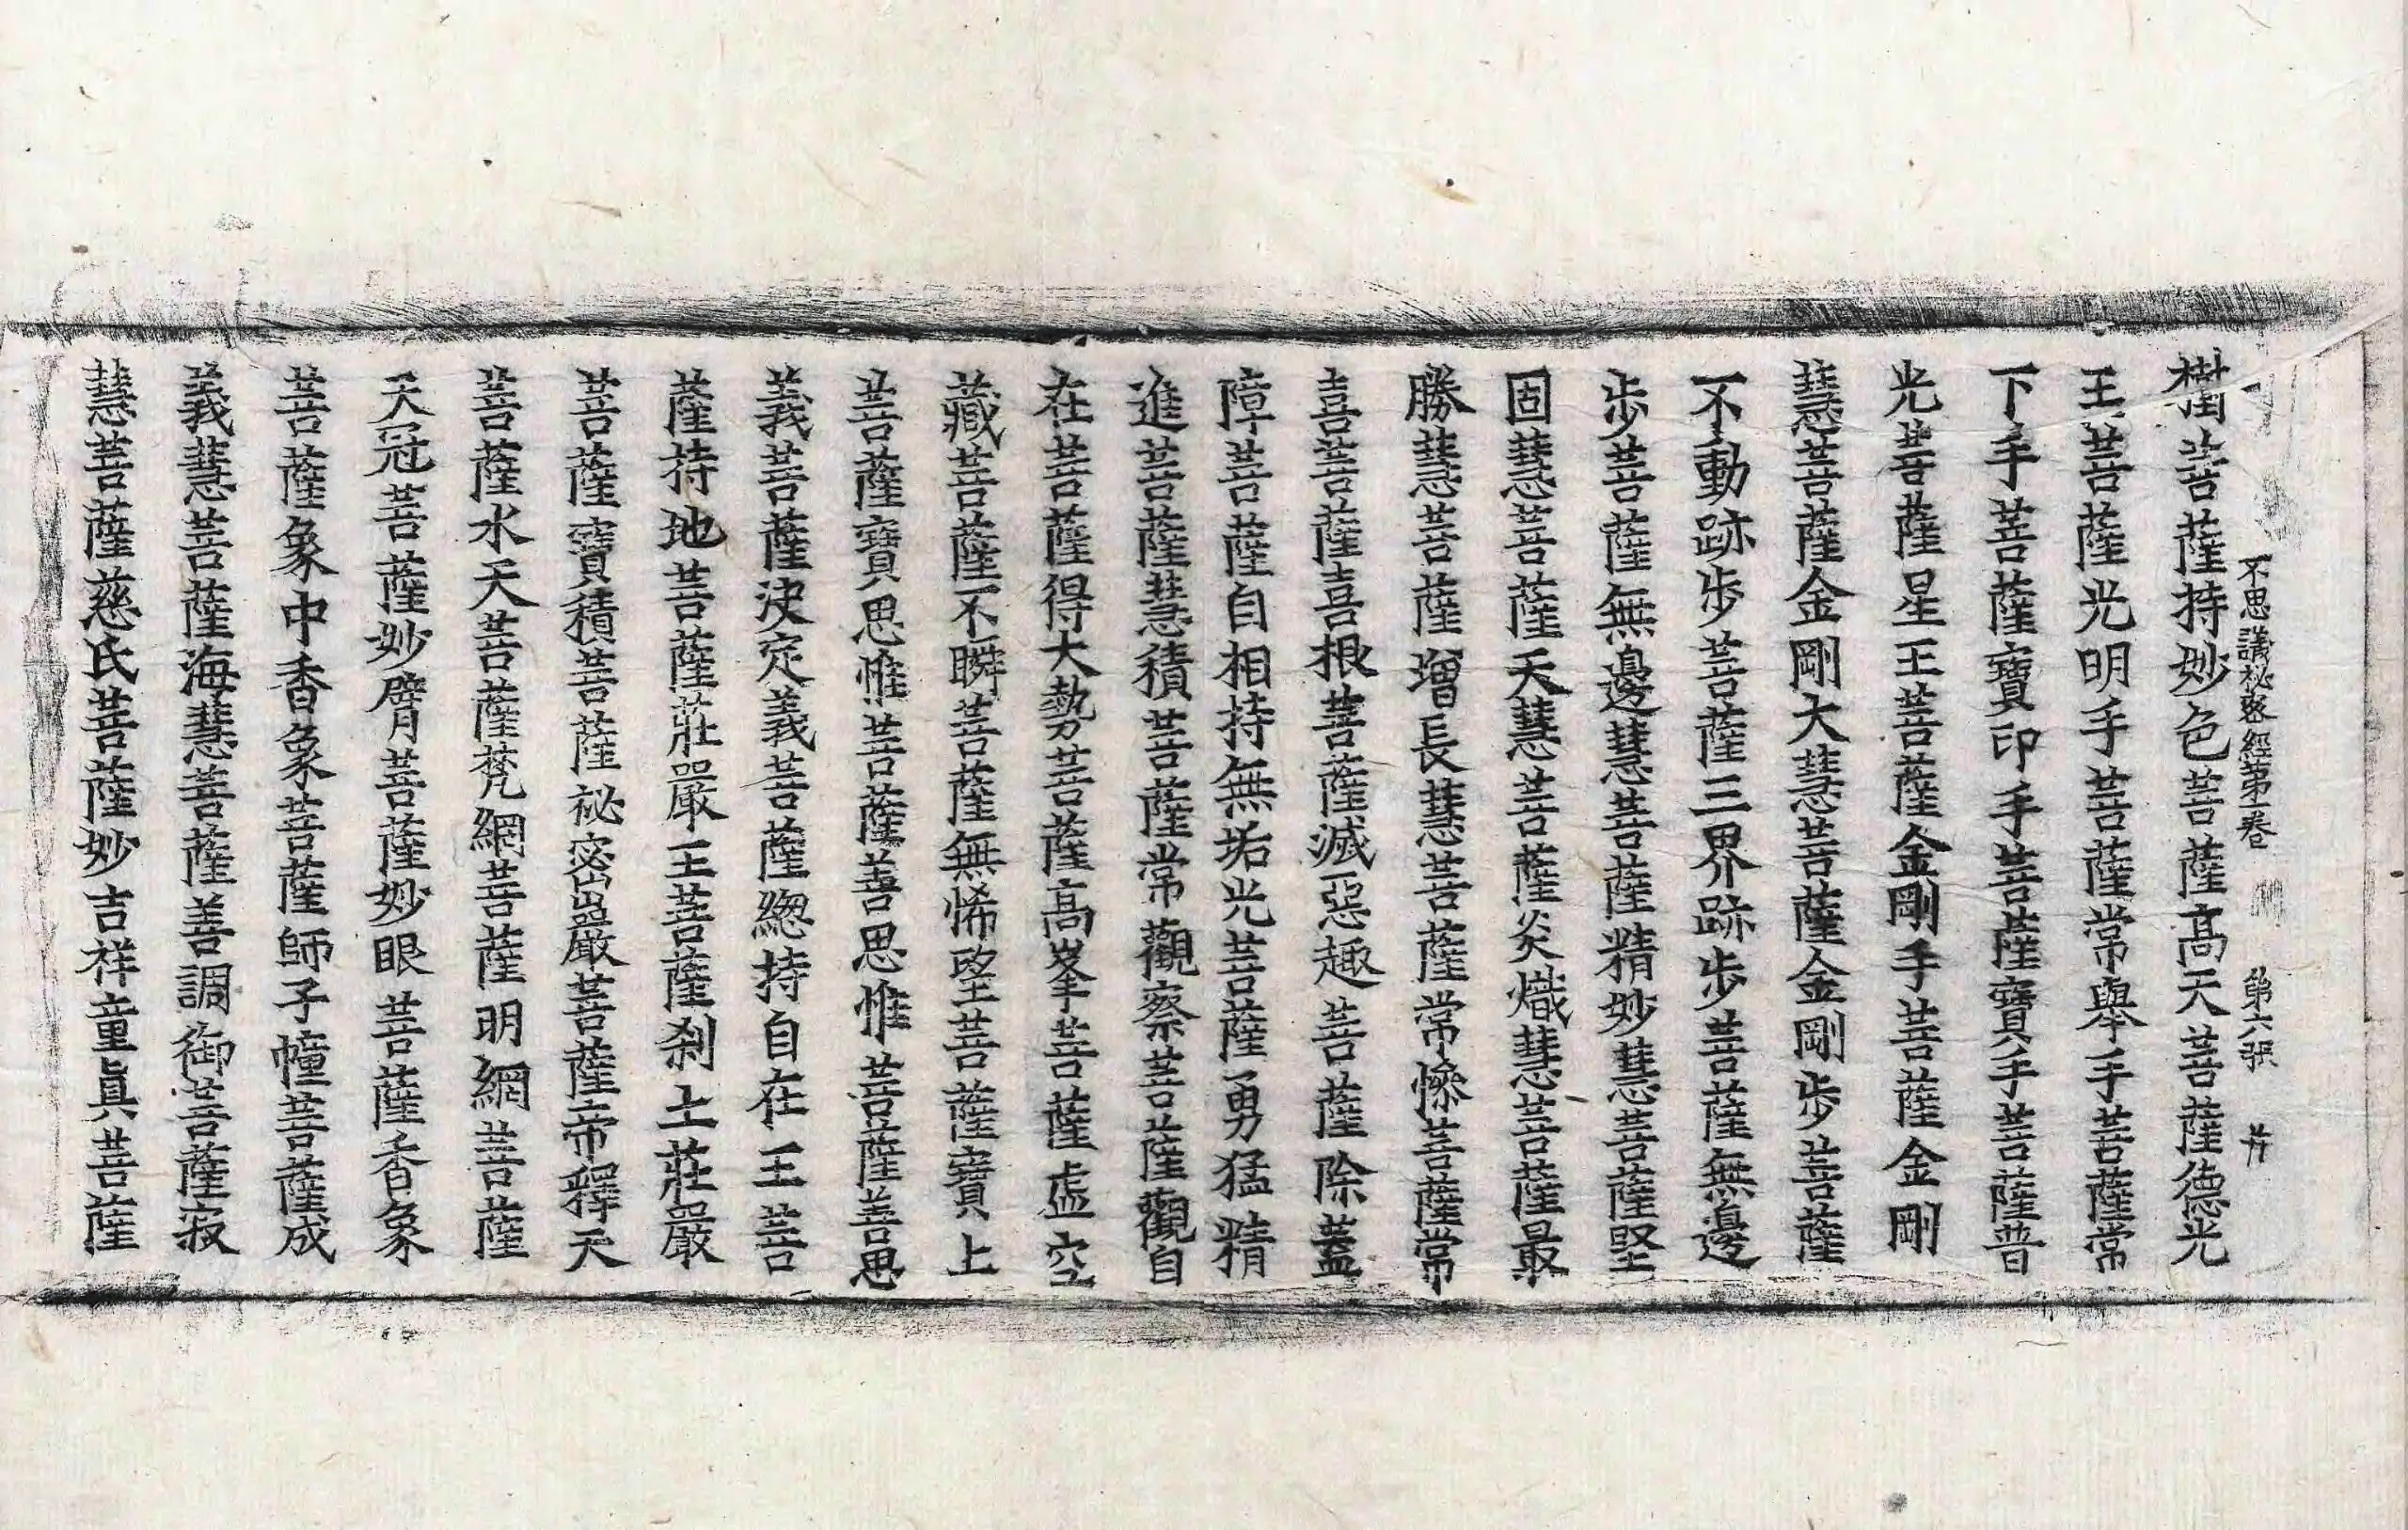 不思議祕密經第一卷 第六張 并
樹菩薩持妙色菩薩高天菩薩德光
王菩薩光明手菩薩常舉手菩薩常
下手菩薩寶印手菩薩寶手菩薩普
光菩薩星王菩薩金剛手菩薩金剛
慧菩薩金剛大慧菩薩金剛步菩薩
不動跡步菩薩三界跡步菩薩無邊
步菩薩無邊慧菩薩精妙慧菩薩堅
固慧菩薩天慧菩薩炎熾慧菩薩最
勝慧菩薩增長慧菩薩常慘菩薩常
喜菩薩喜根菩薩滅惡趣菩薩除蓋
障菩薩自相持無垢光菩薩勇猛精
進菩薩慧積菩薩常觀察菩薩觀自
在菩薩得大勢菩薩高峯菩薩虛空
藏菩薩不瞬菩薩無悕望菩薩寶上
菩薩寶思惟菩薩善思惟菩薩善思
義菩薩決定義菩薩緫持自在王菩
薩持地菩薩莊嚴王菩薩刹土莊嚴
菩薩寶積菩薩祕密嚴菩薩帝釋天
菩薩水天菩薩梵網菩薩明網菩薩
天冠菩薩妙臂菩薩妙眼菩薩香象
菩薩象中香象菩薩師子幢菩薩成
義慧菩薩海慧菩薩善調御菩薩寂
慧菩薩慈氏菩薩妙吉祥童眞菩薩